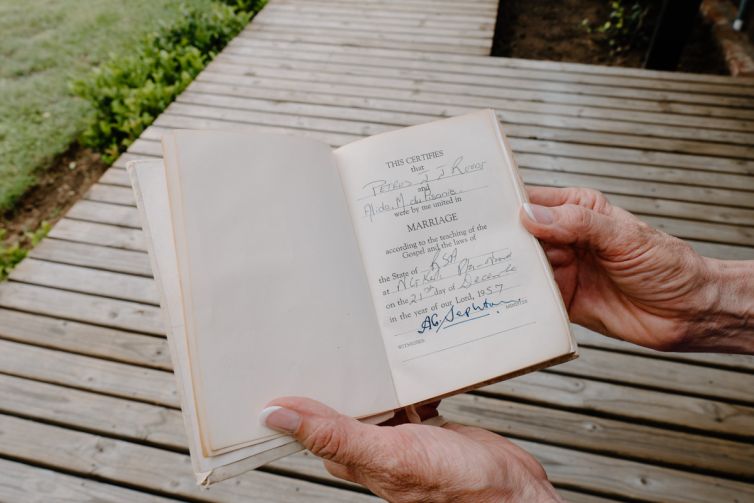 THIS CERTIFIES
that
Petrus J J
and
Alida M du
were by me united in
MARRIAGE
according to the teaching of the
Gospel and the laws of
the State of RSA
at N.G. Kerk
on the 21st day of Desember
in the year of our Lord, 1957
AG. Sephton
MINISTER
WITNESSES